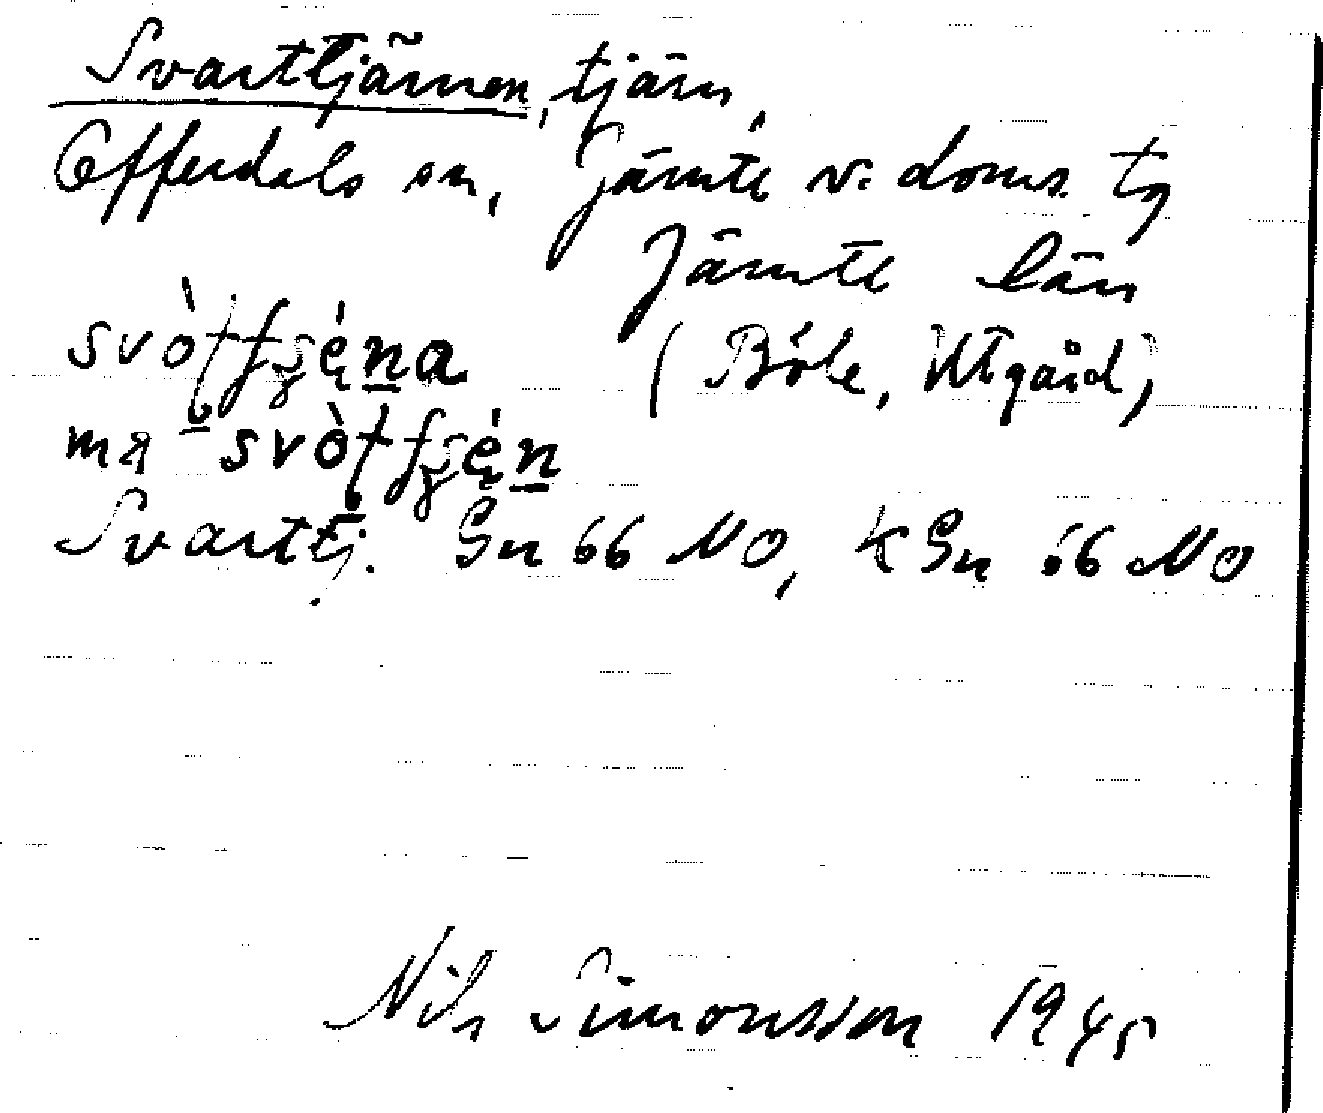 Svarttjärnen, tjärn,
Offerdals sn, Jämte v. doms. tg
Jämte län
(Böle, Utgård)
Svarttj. Gn 66 NO, kGn 66 NO
Nils Simonsson 1945